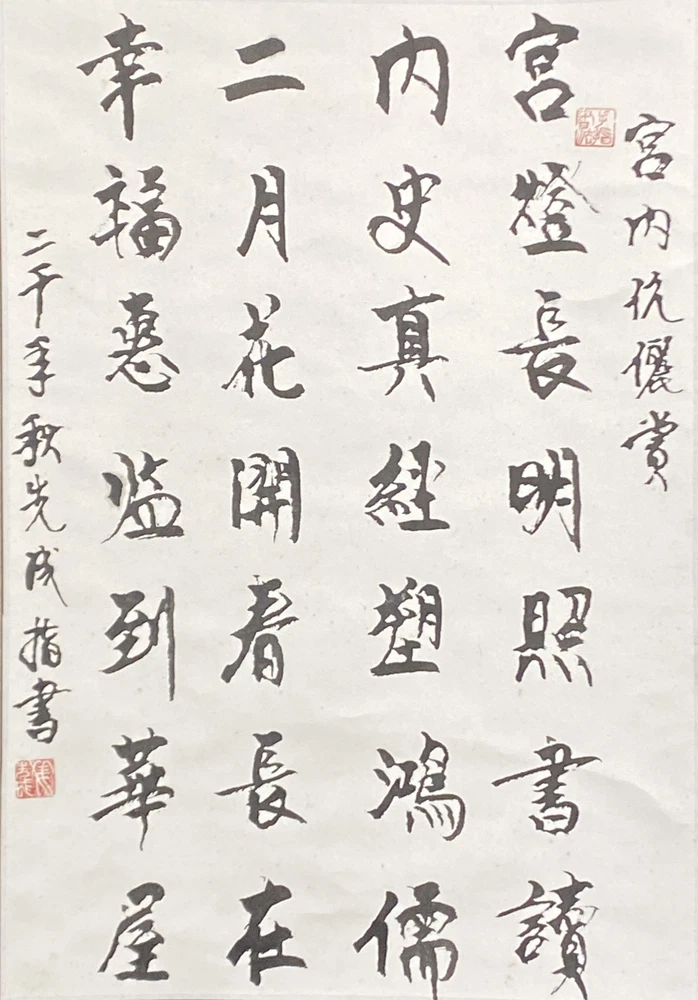 宮内伉儷賞
宮燈長明照書讀
内史真經塑鴻儒
二月花開春長在
幸福惠臨到華屋
二千年秋先成指書